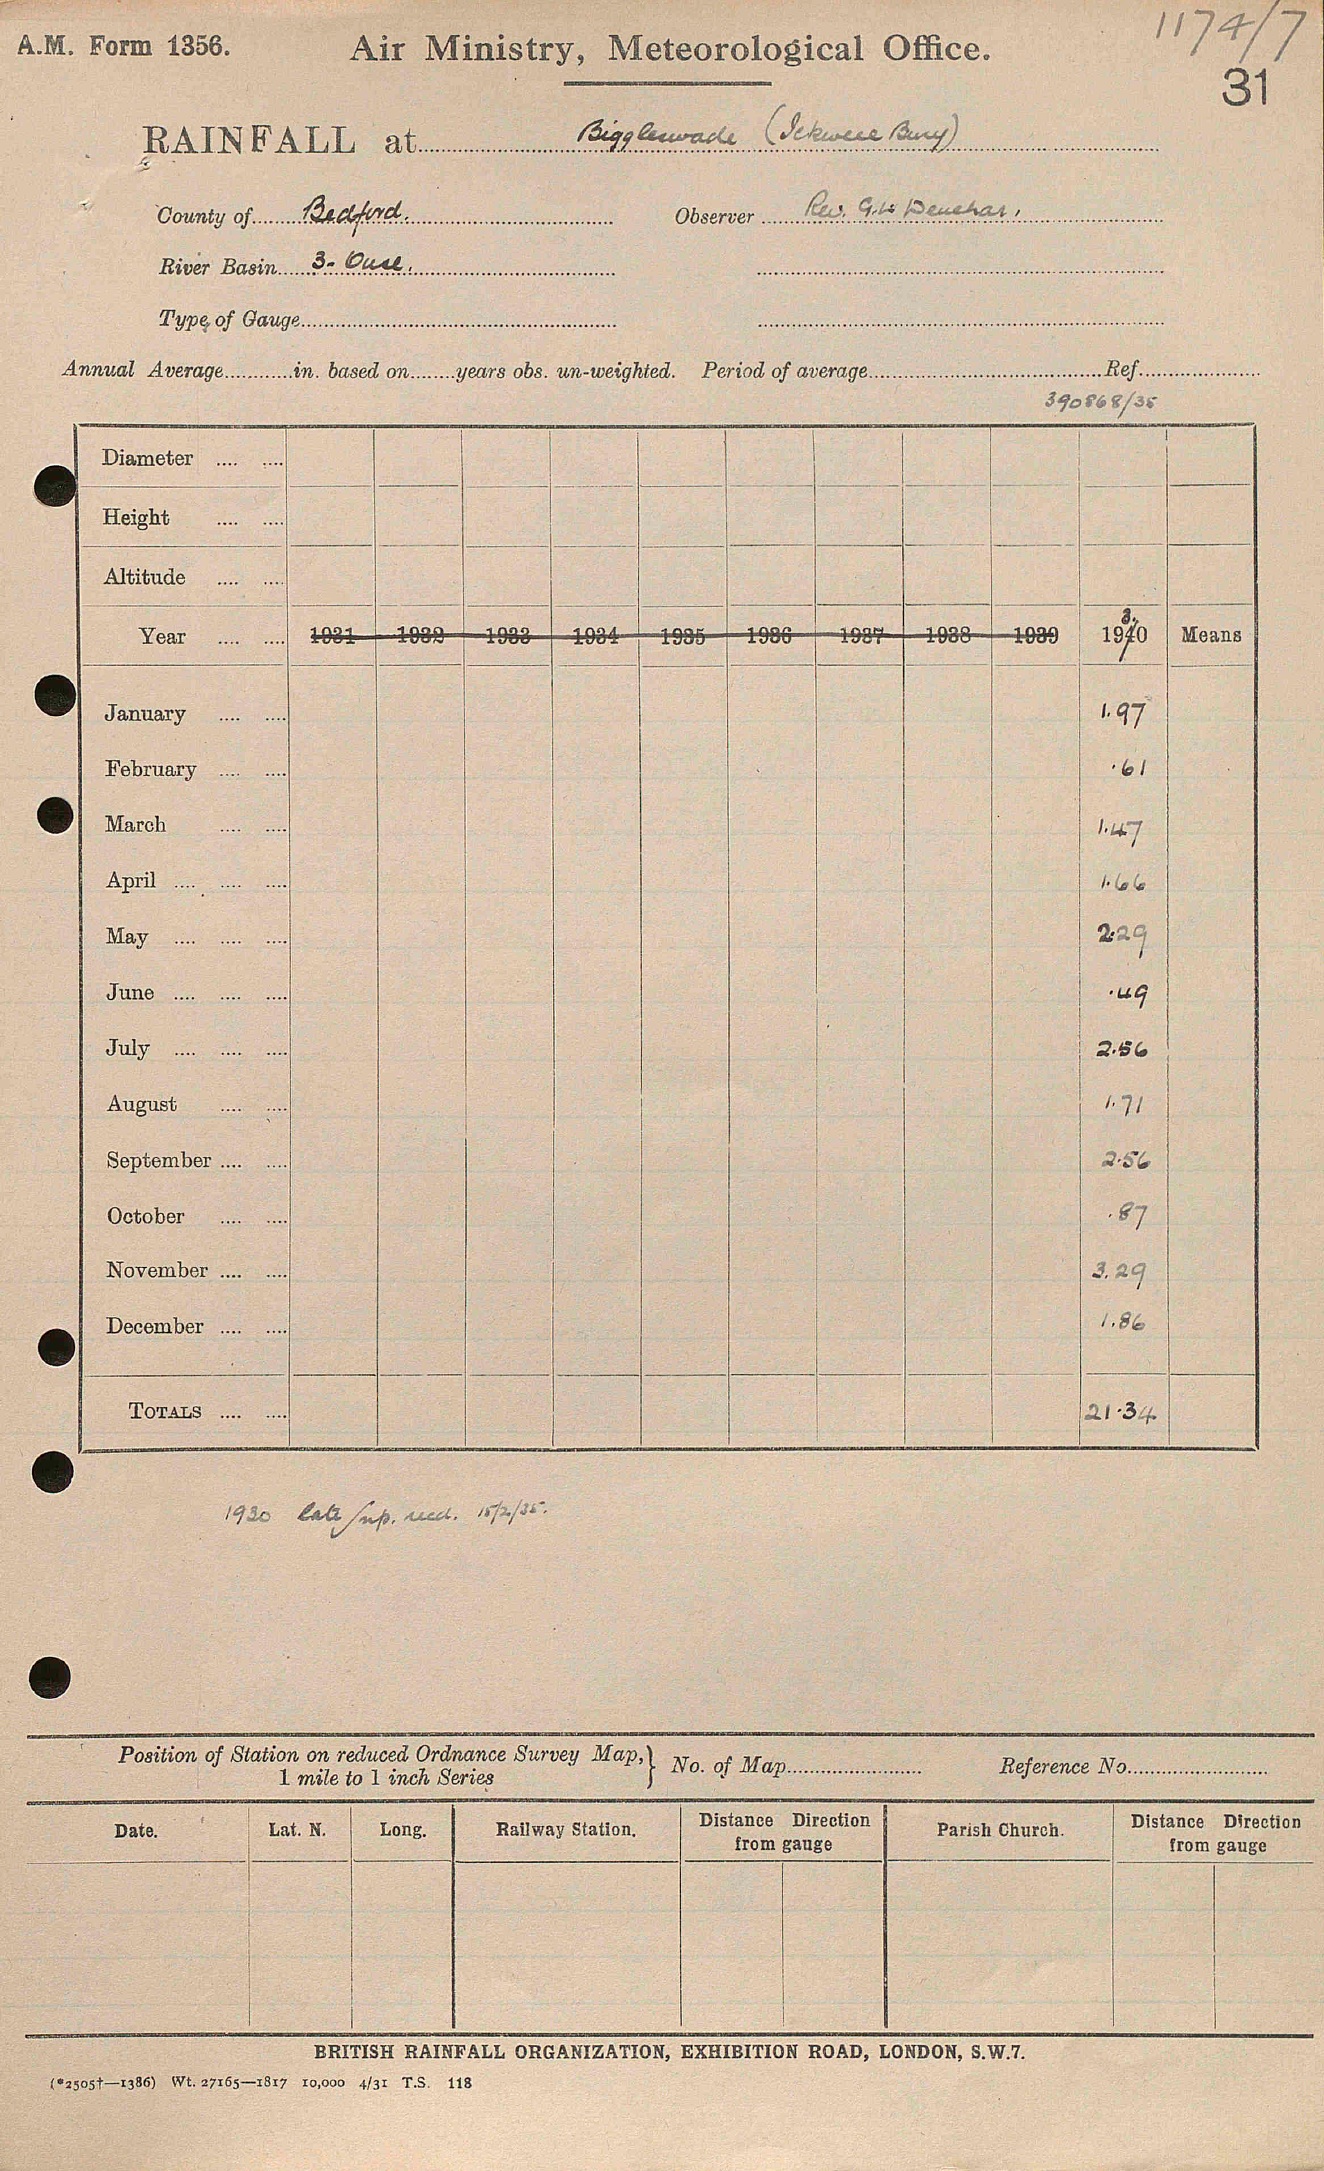 1174/7
A.M. Form 1356. Air Ministry, Meteorological Office.
31
RAINFALL at Biggleswade (Ickwell Bury)
County of Bedford. Observer Rev. G.H.
River Basin 3- Ouse.
Type of Gauge
Annual Average in. based on years obs. un-weighted. Period of average Ref.
390868/35
Diameter
Height
Altitude
Year 1931 1932 1933 1934 1935 1936 1937 1938 1939 1940 3. Means
January 1.97
February .61
March 1.47
April 1.66
May 2.29
June .49
July 2.56
August 1.71
September 2.56
October .87
November 3.29
December 1.86
TOTALS 21.34
1930 late sup. recd. 15/2/35.
Position of Station on reduced Ordnance Survey Map,} No. of Map Reference No.
1 mile to 1 inch Series
Date. Lat. N. Long. Railway Station. Distance Direction Parish Church. Distance Direction
from gauge from gauge
BRITISH RAINFALL ORGANIZATION, EXHIBITION ROAD, LONDON, S.W.7.
(*2505†—1386) Wt. 27165—1817 10,000 4/31 T.S. 118